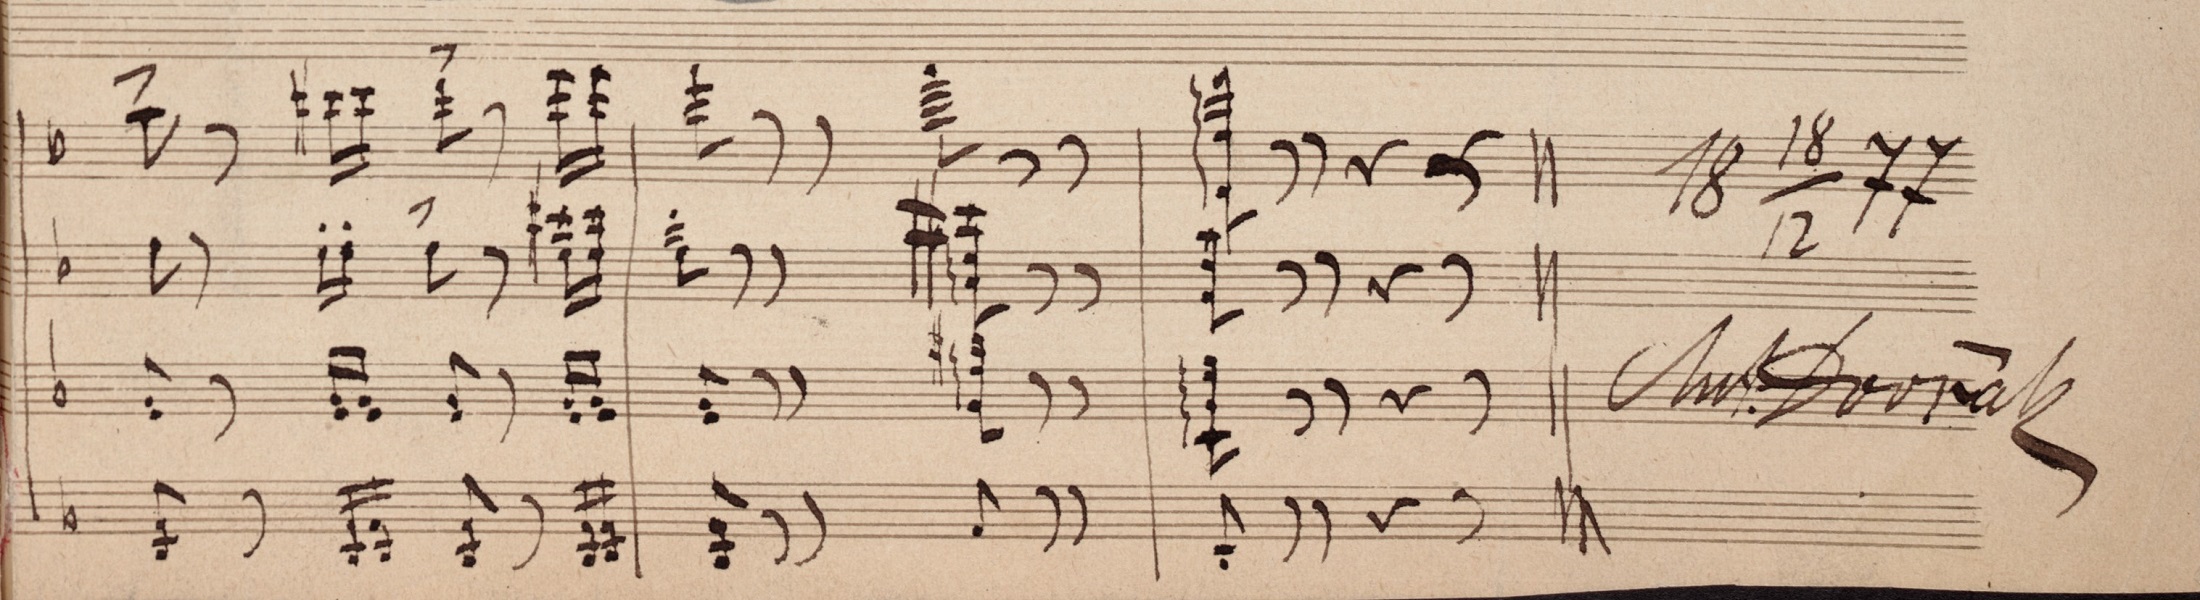 18 18/12 77
Ant. Dvořák